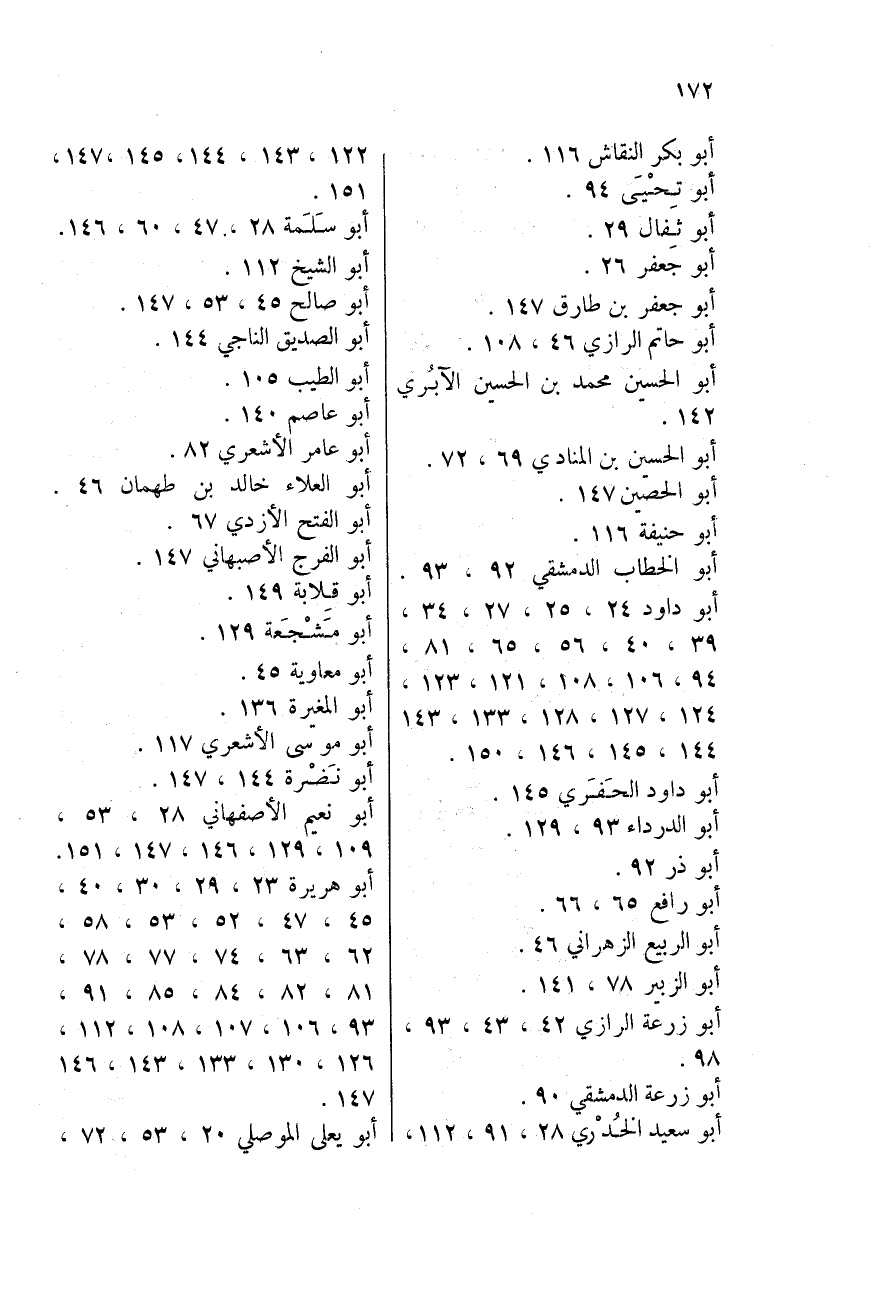 ١٧٢
أبو بكر النقاش ١١٦ .
أبو تِحْيَى ٩٤ .
أبو ثِفال ٢٩ .
أبو جعفر ٢٦ .
أبو جعفر بن طارق ١٤٧ .
أبو حاتم الرازي ٤٦ ، ١٠٨ .
أبو الحسين محمد بن الحسين الآبُري
١٤٢ .
أبو الحسين بن المنادي ٦٩ ، ٧٢ .
أبو الحصين ١٤٧ .
أبو حنيفة ١١٦ .
أبو الخطاب الدمشقي ٩٢ ، ٩٣ .
أبو داود ٢٤ ، ٢٥ ، ٢٧ ، ٣٤ ،
٣٩ ، ٤٠ ، ٥٦ ، ٦٥ ، ٨١ ،
٩٤ ، ١٠٦ ، ١٠٨ ، ١٢١ ، ١٢٣ ،
١٢٤ ، ١٢٧ ، ١٢٨ ، ١٣٣ ، ١٤٣
١٤٤ ، ١٤٥ ، ١٤٦ ، ١٥٠ .
أبو داود الحَفَري ١٤٥ .
أبو الدرداء ٩٣ ، ١٢٩ .
أبو ذر ٩٢ .
أبو رافع ٦٥ ، ٦٦ .
أبو الربيع الزهراني ٤٦ .
أبو الزبير ٧٨ ، ١٤١ .
أبو زرعة الرازي ٤٢ ، ٤٣ ، ٩٣ ،
٩٨ .
أبو زرعة الدمشقي ٩٠ .
أبو سعيد الخُدْري ٢٨ ، ٩١ ، ١١٢ ،
١٢٢ ، ١٤٣ ، ١٤٤ ، ١٤٥ ، ١٤٧ ،
١٥١ .
أبو سَلَمة ٢٨ ، ٤٧ ، ٦٠ ، ١٤٦ .
أبو الشيخ ١١٢ .
أبو صالح ٤٥ ، ٥٣ ، ١٤٧ .
أبو الصديق الناجي ١٤٤ .
أبو الطيب ١٠٥ .
أبو عاصم ١٤٠ .
أبو عامر الأشعري ٨٢ .
أبو العلاء خالد بن طهمان ٤٦ .
أبو الفتح الأزدي ٦٧ .
أبو الفرج الأصبهاني ١٤٧ .
أبو قِلابة ١٤٩ .
أبو مَشْجَعَة ١٢٩ .
أبو معاوية ٤٥ .
أبو المغيرة ١٣٦ .
أبو موسى الأشعري ١١٧ .
أبو نَضْرة ١٤٤ ، ١٤٧ .
أبو نعيم الأصفهاني ٢٨ ، ٥٣ ،
١٠٩ ، ١٢٩ ، ١٤٦ ، ١٤٧ ، ١٥١ .
أبو هريرة ٢٣ ، ٢٩ ، ٣٠ ، ٤٠ ،
٤٥ ، ٤٧ ، ٥٢ ، ٥٣ ، ٥٨ ،
٦٢ ، ٦٣ ، ٧٤ ، ٧٧ ، ٧٨ ،
٨١ ، ٨٢ ، ٨٤ ، ٨٥ ، ٩١ ،
٩٣ ، ١٠٦ ، ١٠٧ ، ١٠٨ ، ١١٢ ،
١٢٦ ، ١٣٠ ، ١٣٣ ، ١٤٣ ، ١٤٦
١٤٧ .
أبو يعلى الموصلي ٢٠ ، ٥٣ ، ٧٢ ،